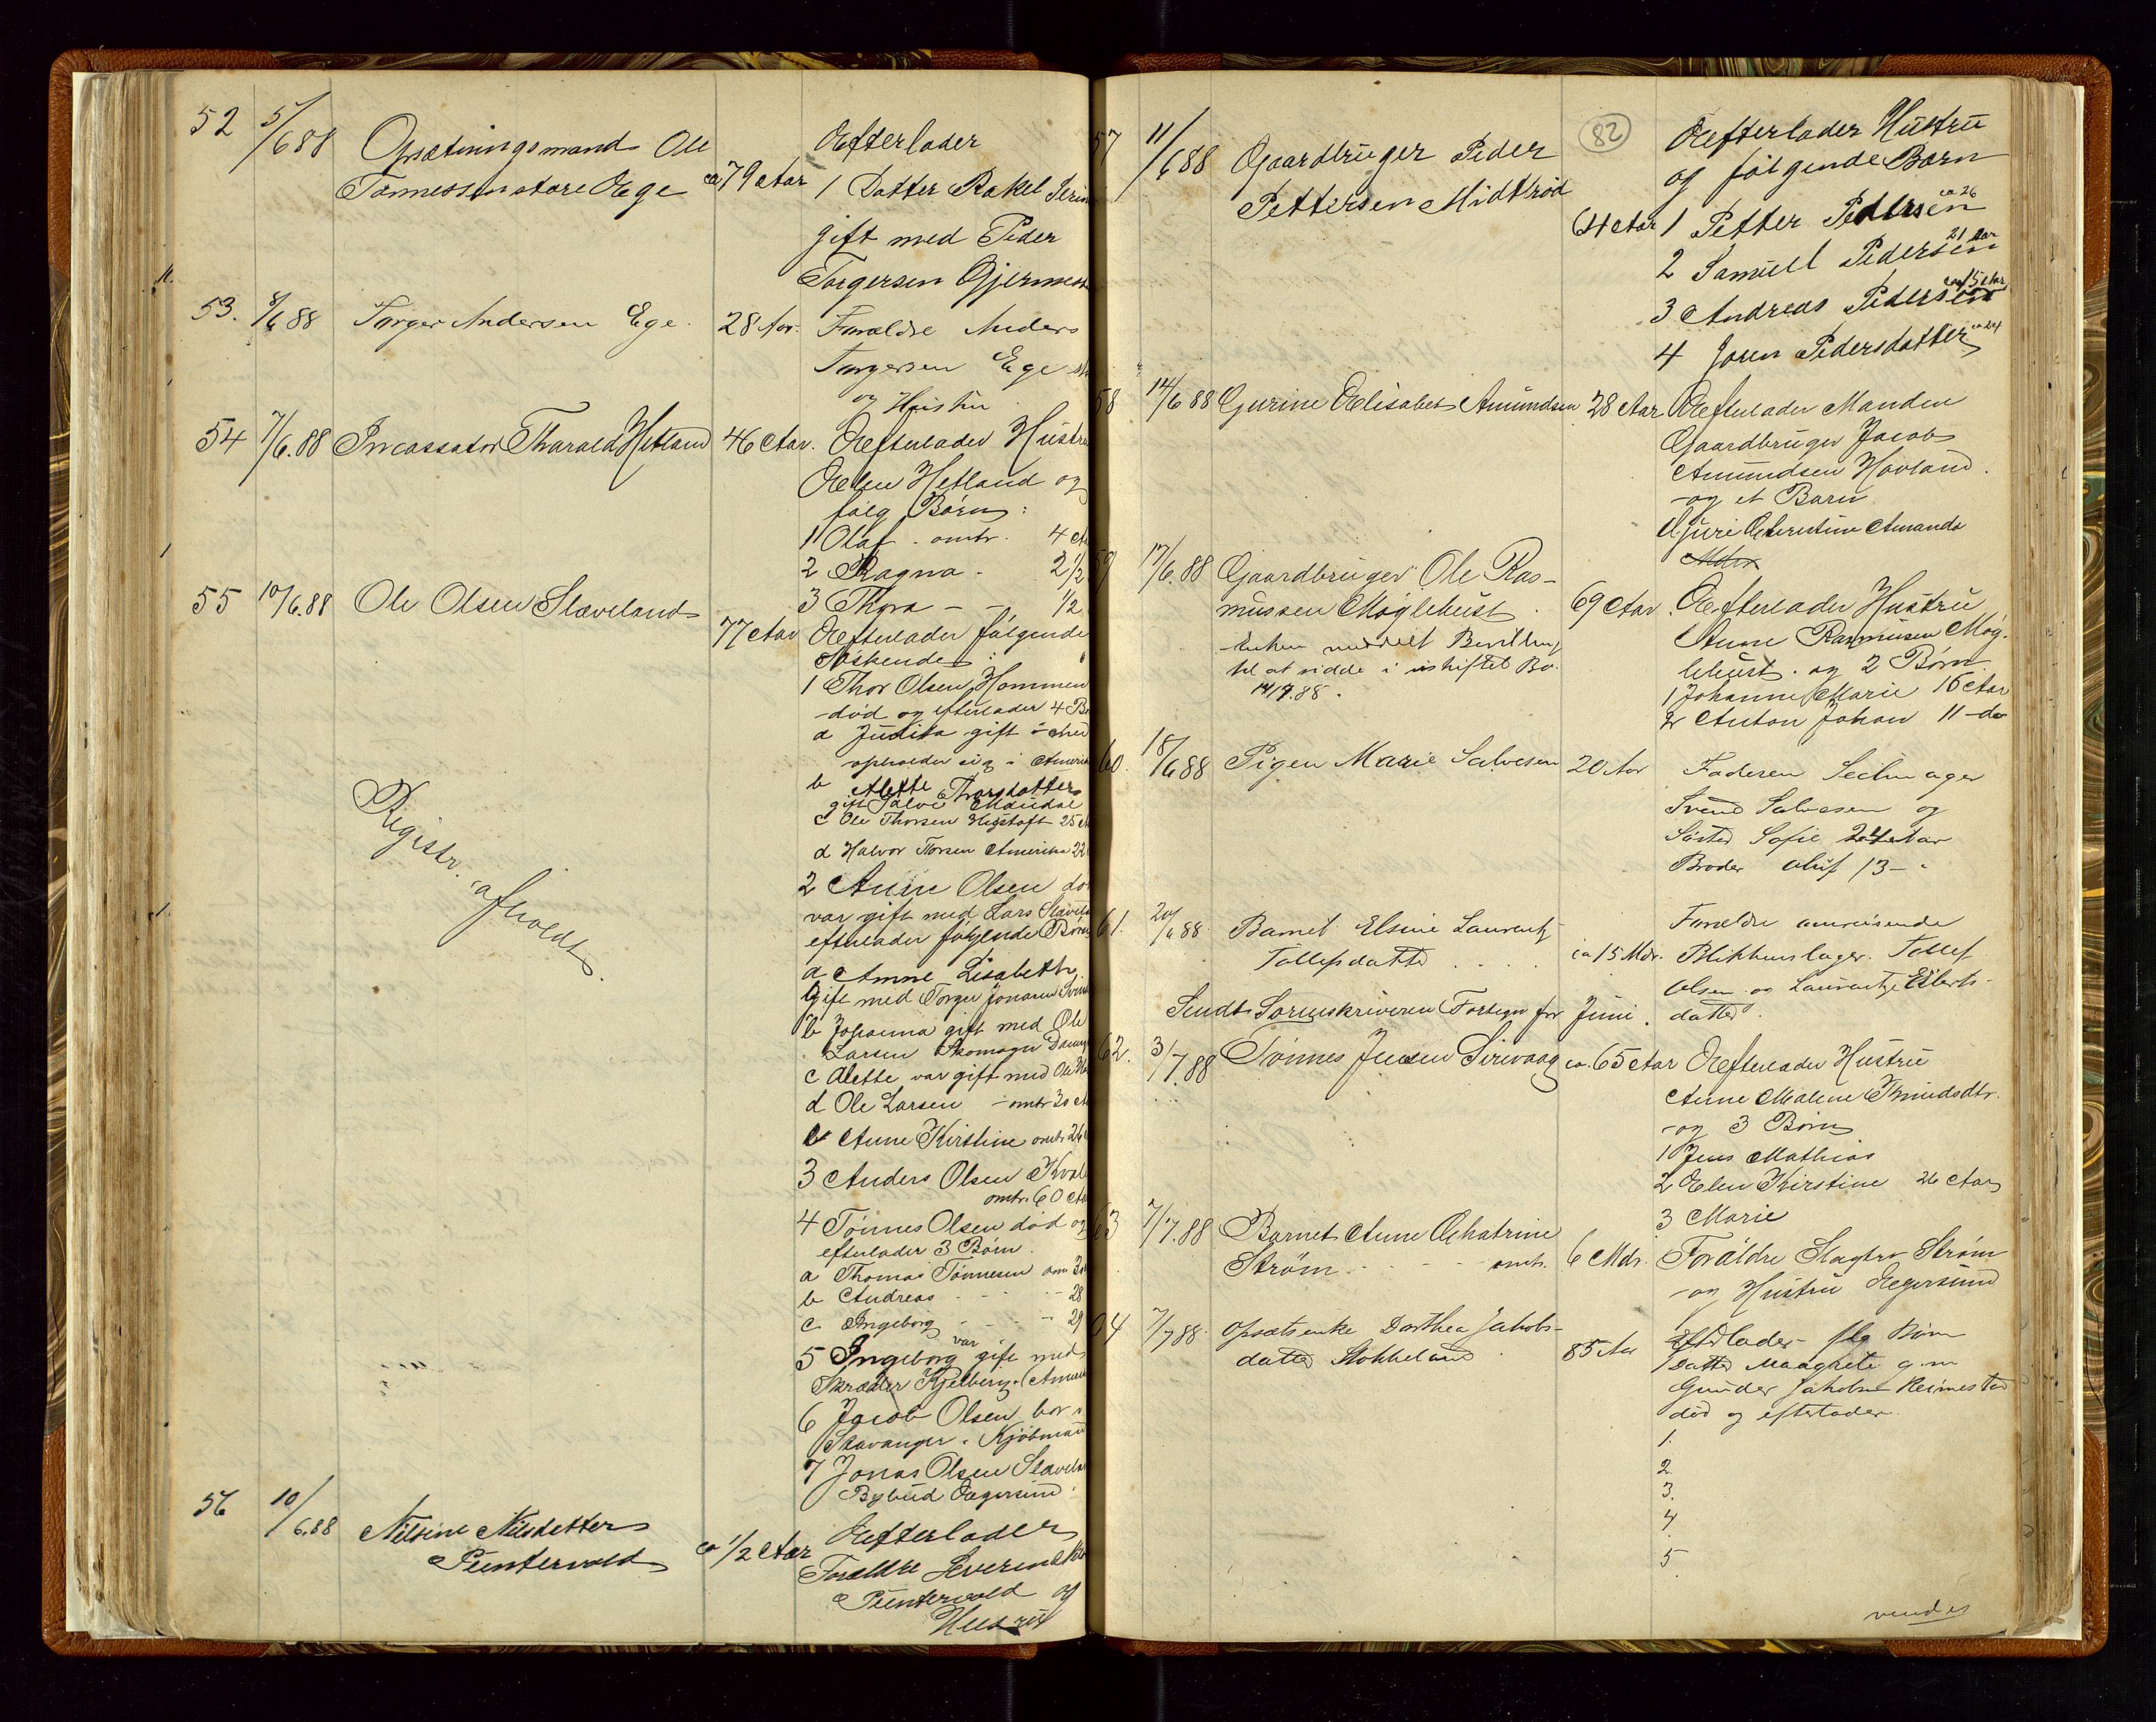 52 5/6 88 Opsætningsmand Ole
Tønnessen store Ege ca 79 Aar
Efterlader
1 Datter Rakel Serin
gift med Peder
Torgersen Gjermes
53. 8/6 88 Torger Andersen Ege. 28 Aar.
Forældre Anders
Torgersen Ege
og Hustru
54 7/6.88 Incassator Tharald Hetland 46 Aar.
Efterlader Hustru
Elen Hetland og
følg Børn:
1 Olaf. omtr. 4 A
2 Ragna - 2 1/2
3 Thora - - 1/2
55 10/6.88 Ole Olsen Slæveland 77 Aar
Registr. afholdt.
Efterlader følgende
Søskende:
1 Thor Olsen Hommen
død og efterlader 4 B
a Juditta gift
opholder sig i Amerik
b Alette Thorsdatter
gift Salve Mandal
c Ole Thorsen 25 A
d Halvor Torsen Amerika 22
2 Anne Olsen dø
var gift med Lars Slævela
efterlader følgende Børn
a Anne Lisabeth
gift med Torger Jonasen
b Johanna gift med Ole
Larsen Skomager
c Alette var gift med Ole
d Ole Larsen - omtr 30 A
e Anne Kirstine omtr 26
3 Anders Olsen
omtr. 60 Aa
4 Tønnes Olsen død og
efterlader 3 Børn.
a Thomas Tønnesen om 30
b Andreas - - - 28
c Ingeborg - - - 29
5 Ingeborg var gift med
Skrædder Kjelberg. (Amer
6 Jacob Olsen bor i
Stavanger. Kjøbman
7 Jonas Olsen Slævela
Bybud Egersund.
56 10/6.88 Nilsine Nilsdatter
Puntervold ca 1/2 Aar
Efterlader
Forældre Severin
Puntervold og
Hustru
82
57 11/6 88 Gaardbruger Peder
Pettersen Midbrød 64 Aar
Efterlader Hustru
og følgende Børn
1 Petter Pedersen ca 26
2 Samuel Pedersen 21 Aar
3 Andreas Pedersen ca 15 Aar
4 Joren Pedersdatter ca 24
58 14/6 88 Gurine Elisabet Amundsen 28 Aar
Efterlader Manden
Gaardbruger Jacob
Amundsen Hovland.
og et Barn
Guri Christine Amanda
59 17/6.88 Gaardbruger Ole Ras-
mussen Møglehust. 69 Aar.
Enken meddelt Bevilling
til at sidde i uskiftet Bo.
14/7.88.
Efterlader Hustru
Anne Rasmusen Møg-
lehust. og 2 Børn.
1 Johanne Marie 16 Aar
2 Anton Johan 11 - do
60. 18/6 88 Pigen Marie Salvesen 20 Aar
Faderen Seilmager
Svend Salvesen og
Søster Sofie 24 Aar
Broder Oluf 13 - "
61. 20/6 88. Barnet Elsine Laurentz
Tollefsdatter . . . . ca 15 Mdr.
Forældre omreisende
Blikkenslager. Tollef
Olsen og Laurentze Eilerts-
datter.
Sendt Sorenskriveren Fortegn for Juni.
62. 3/7.88 Tønnes Jensen Sirevaag ca. 65 Aar
Efterlader Hustru
Anne Malene Tmundsdtr.
og 3 Børn
1 Jens Mathias
2 Elen Kirstine 26 Aar
3 Marie
63 7/7.88 Barnet Anne Chatrine
Strøm . - - - omtr. 6 Mdr.
Forældre Slagter Strøm
og Hustru Egersund
64 7/7 88. Opsætsenke Dorthea Jakobs-
datter Stokkeland 85 Aar
Efterlader flg Børn
1 Datter Maagrete g. m
Gunder Jakobsen
død og efterlader.
1.
2.
3.
4
5
vendes